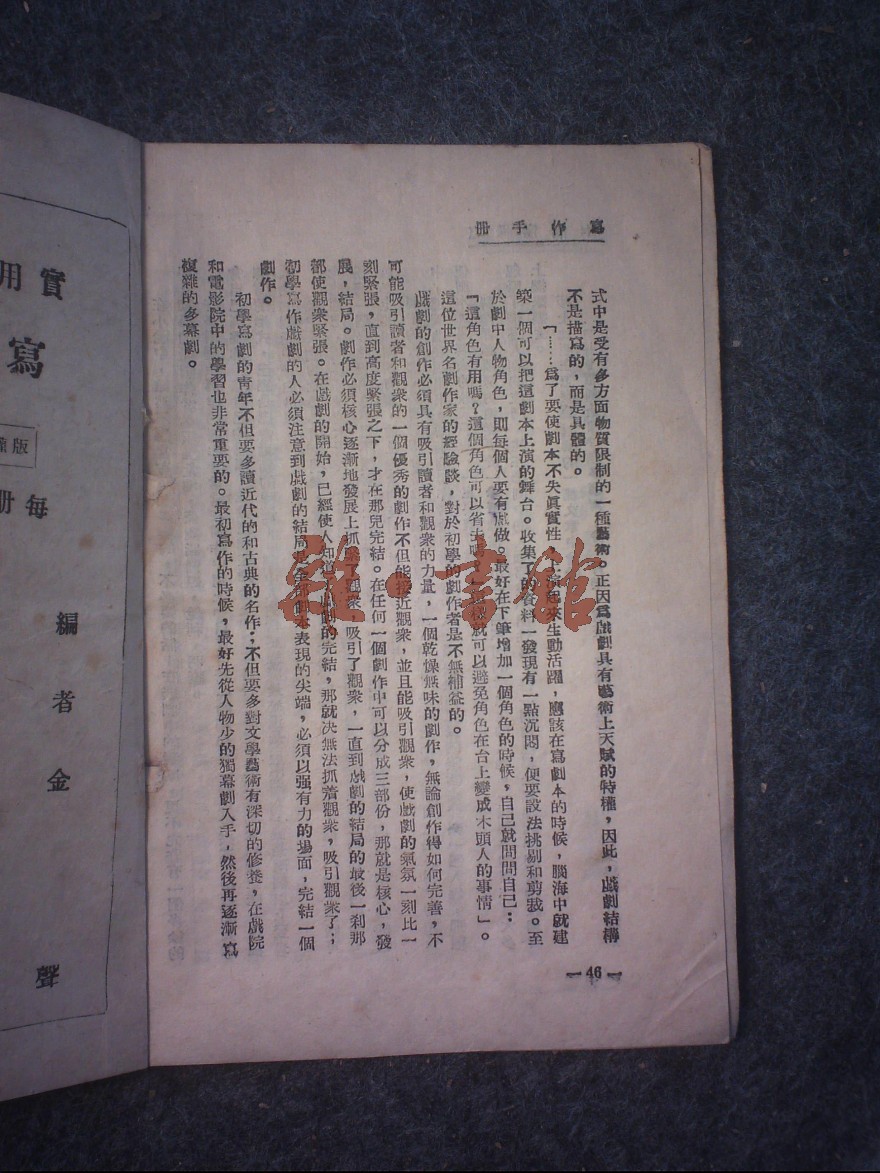 寫作手册
式中是受有多方面物質限制的一種藝術。正因爲戲劇具有藝術上天賦的特權，因此，戲劇結構
不是描寫的，而是具體的。
「……爲了要使劇本不失眞實性，上演起來生動活躍，應該在寫劇本的時候，腦海中就建
築一個可以把這劇本上演的舞台。收集了的資料一發現有一點沉悶，便要設法挑剔和剪裁。至
於劇中人物角色，則每個人要有戲做。最好在下筆增加一個角色的時候，自己就問問自己：
「這角色有用嗎？這個角色可以省去嗎」就可以避免角色在台上變成木頭人的事情」。
這位世界名劇作家的經驗談，對於初學的劇作者是不無補益的。
戲劇的創作必須具有吸引讀者和觀衆的力量，一個乾燥無味的劇作，無論創作得如何完善，不
可能吸引讀者和觀衆的一個優秀的劇作不但能接近觀衆，並且能吸引觀衆，使戲劇的氣氛一刻比一
刻緊張，直到高度緊張之下，才在那兒完結。在任何一個劇作中可以分成三部份，那就是核心，發
展，結局。劇作必須核心逐漸地發展上抓緊了觀衆，吸引了觀衆，一直到戲劇的結局的最後一刹那
都使觀衆緊張。在戲劇的開始，已經使人知道了戲劇的完結，那就決無法抓着觀衆，吸引觀衆了；
初學寫作戲劇的人必須注意到戲劇的結局是全部劇本表現的尖端，必須以强有力的場面，完結一個
劇作。
初學寫劇的青年不但要多讀近代的和古典的名作；不但要多對文學藝術有深切的修養，在戲院
和電影院中的學習也非常重要的。最初寫作的時候，最好先從人物少的獨幕劇入手，然後再逐漸寫
複雜的多幕劇。
— 46 —
實用
寫
版
每册
編者金
聲
書館